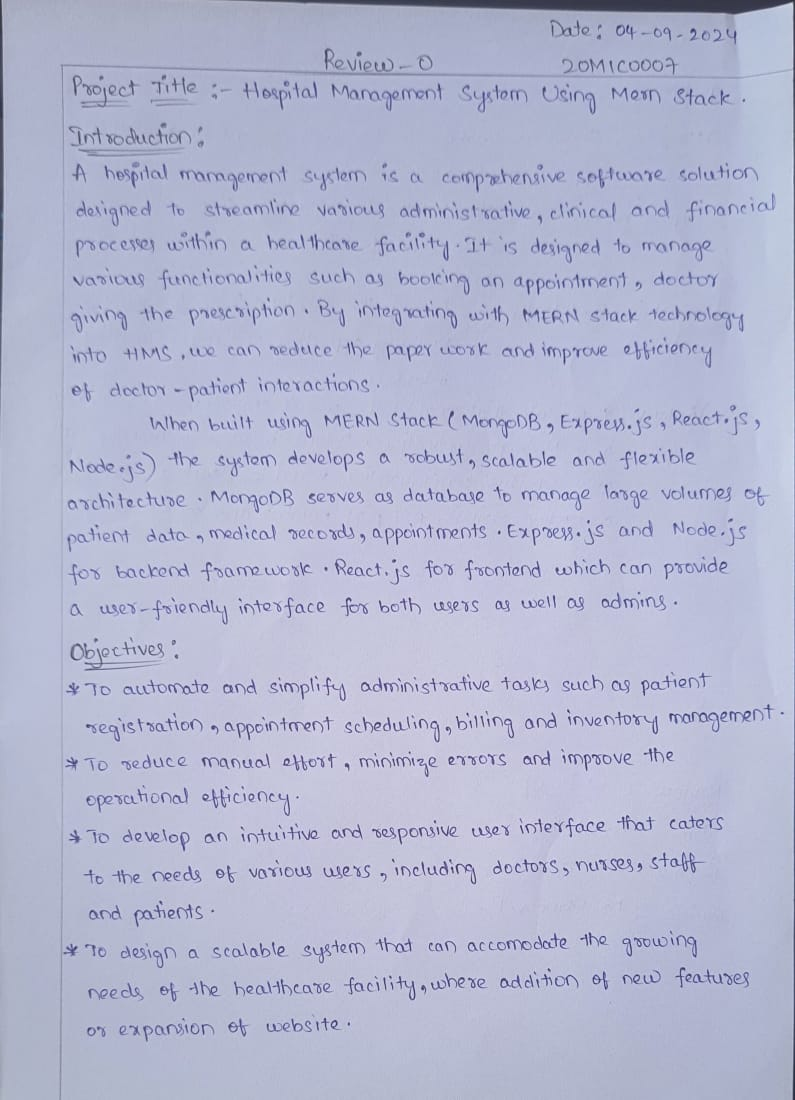 Date: 04-09-2024
Review-0 20MIC0007
Project Title :- Hospital Management System Using Mern Stack.
Introduction:
A hospital management system is a comprehensive software solution
designed to streamline various administrative, clinical and financial
processes within a healthcare facility. It is designed to manage
various functionalities such as booking an appointment, doctor
giving the prescription. By integrating with MERN stack technology
into HMS, we can reduce the paper work and improve efficiency
of doctor-patient interactions.
When built using MERN Stack (MongoDB, Express.js, React.js,
Node.js) the system develops a robust, scalable and flexible
architecture. MongoDB serves as database to manage large volumes of
patient data, medical records, appointments. Express.js and Node.js
for backend framework. React.js for frontend which can provide
a user-friendly interface for both users as well as admins.
Objectives:
* To automate and simplify administrative tasks such as patient
registration, appointment scheduling, billing and inventory management.
* To reduce manual effort, minimize errors and improve the
operational efficiency.
* To develop an intuitive and responsive user interface that caters
to the needs of various users, including doctors, nurses, staff
and patients.
* To design a scalable system that can accomodate the growing
needs of the healthcare facility, where addition of new features
or expansion of website.